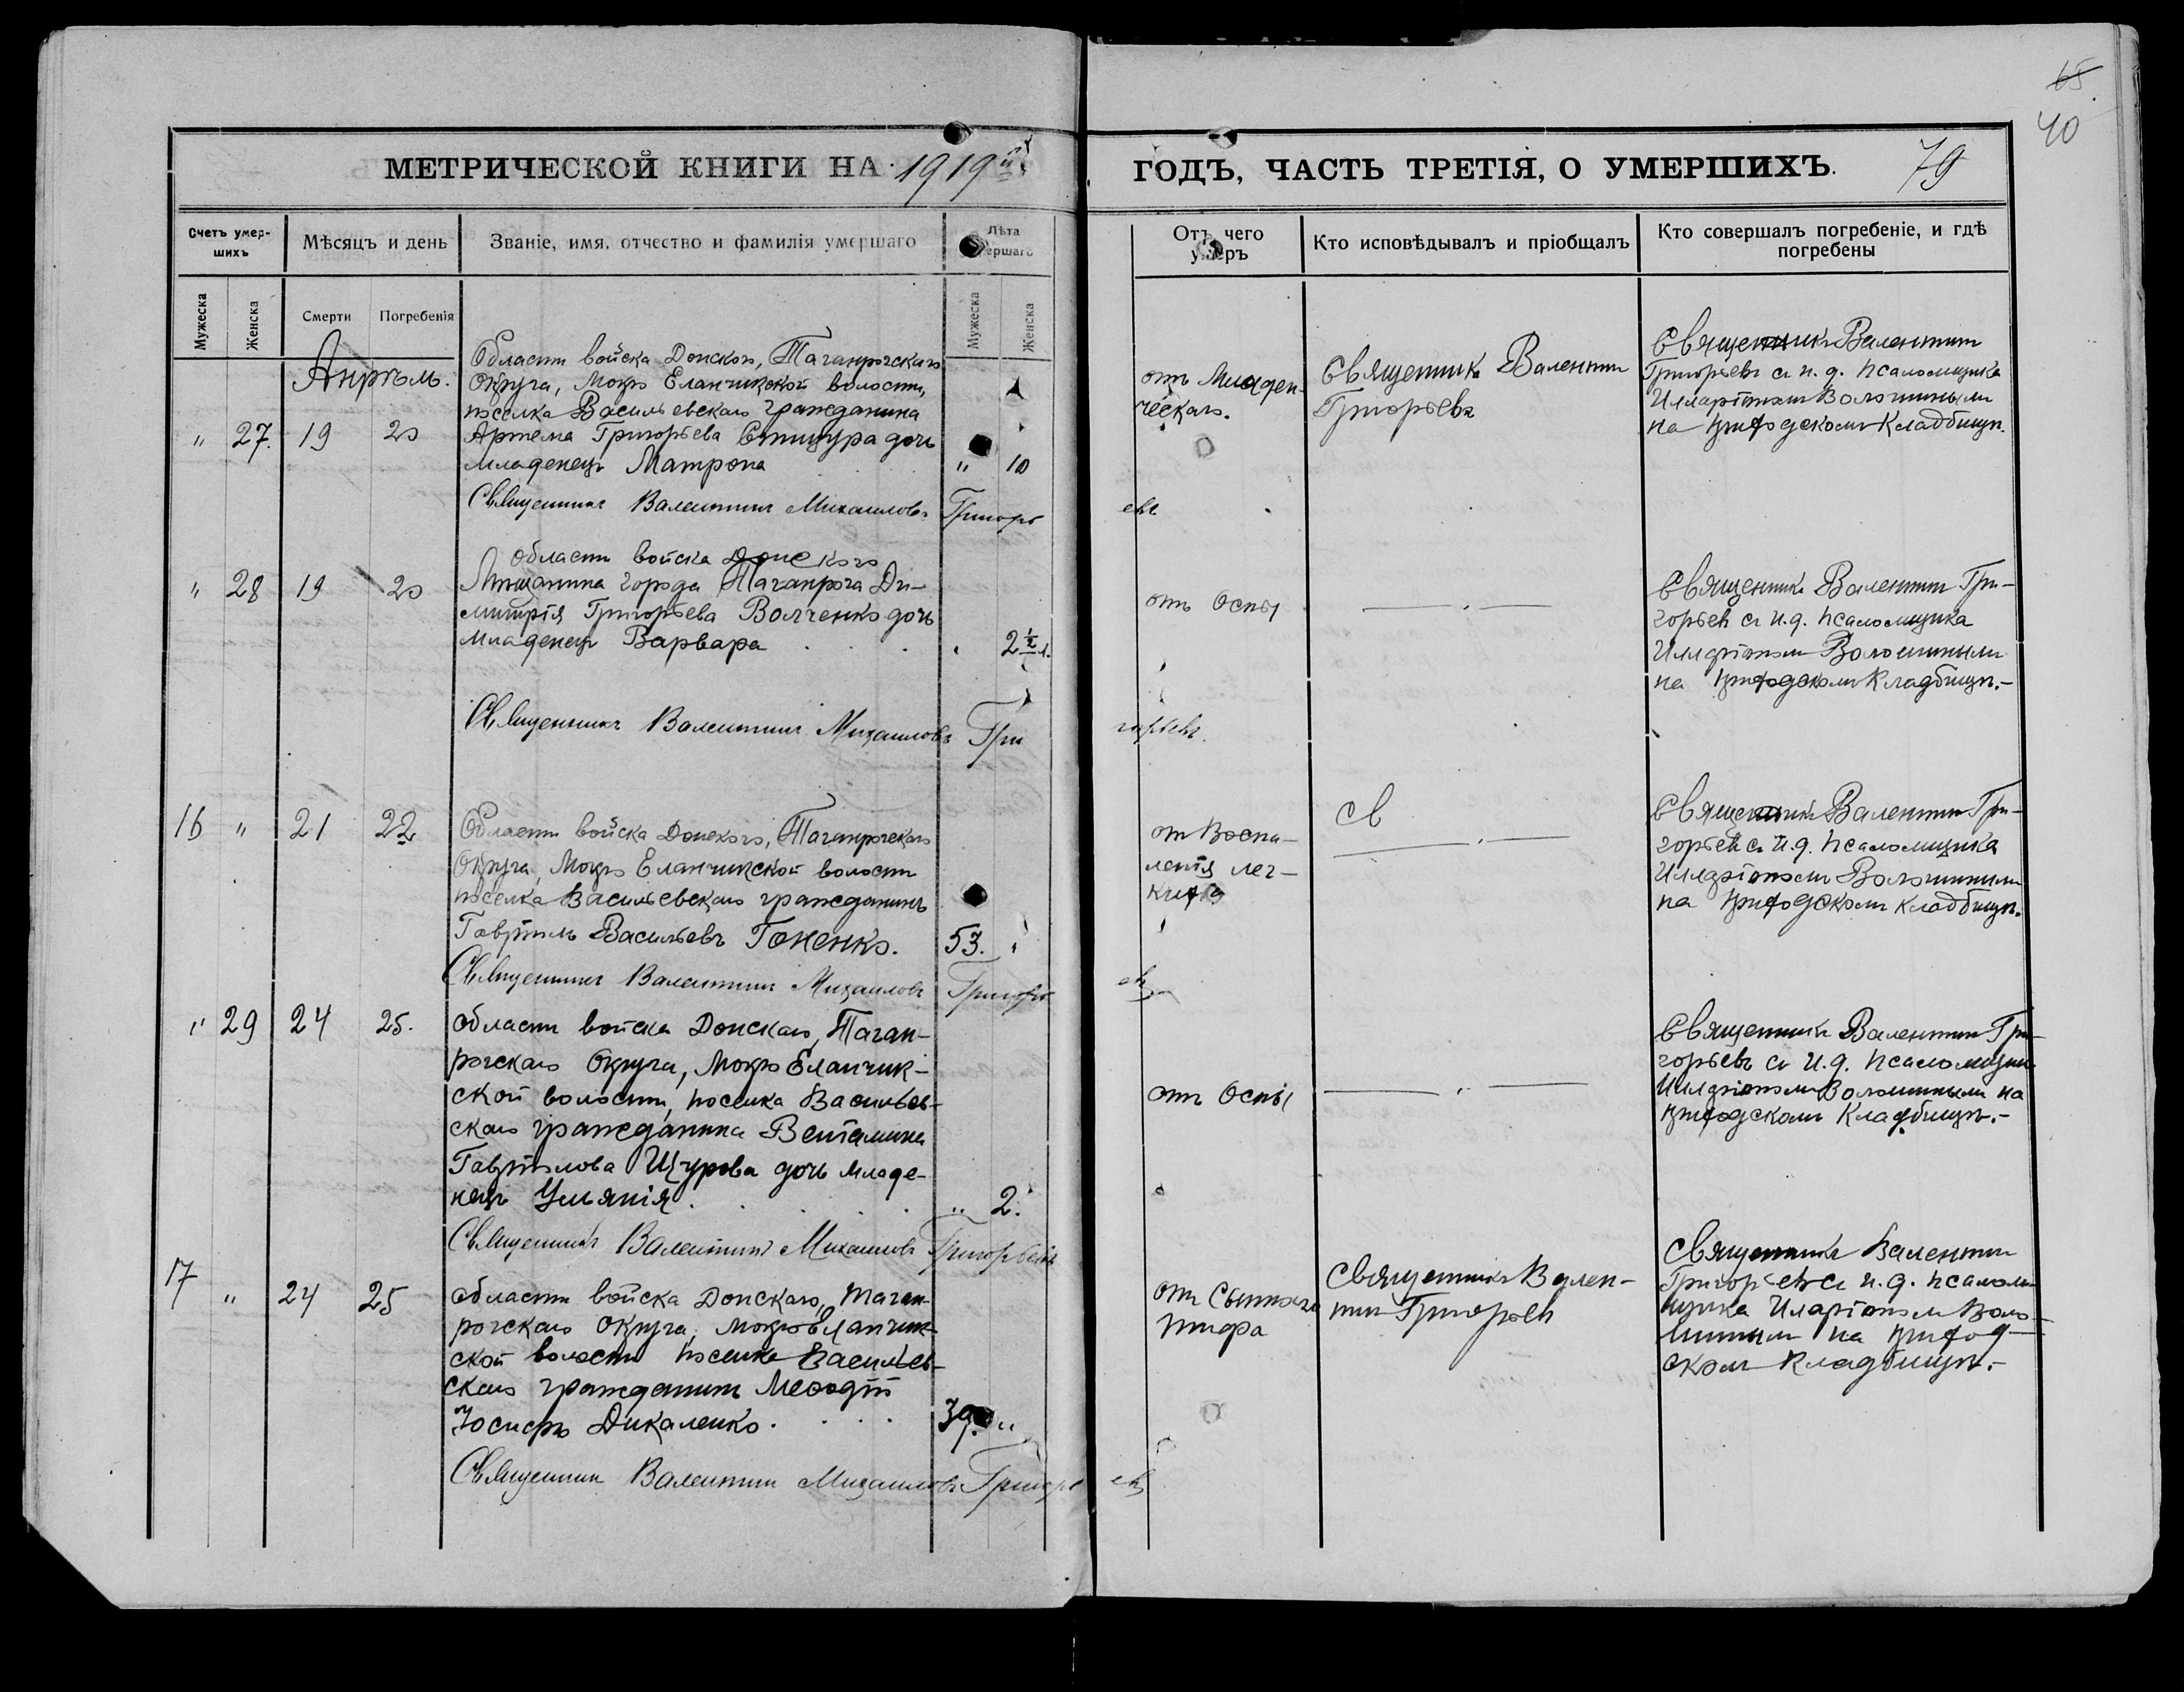 65
40
МЕТРИЧЕСКОЙ КНИГИ НА 1919й ГОДЪ, ЧАСТЬ ТРЕТІЯ, О УМЕРШИХЪ. 79
Счетъ умершихъ
Мѣсяцъ и день
Званіе, имя, отчество и фамилія умершаго
Лѣта умершаго
Отъ чего умеръ
Кто исповѣдывалъ и пріобщалъ
Кто совершалъ погребеніе, и гдѣ погребены
Мужеска
Женска
Смерти
Погребенія
Мужеска
Женска
Апрѣль.
" 27. 19 20
Области войска Донского, Таганрогскаго
Округа, Мокро Еланчикской волости,
поселка Васильевскаго гражданина
Артема Григорьева дочь
младенецъ Матрона " 10
отъ Младен-
ческаго.
Священникъ Валентин
Григорьевъ
Священникъ Валентин
Григорьевъ съ и. д. псаломщика
Илларіономъ Волошинымъ
на приходскомъ Кладбищѣ.
Священникъ Валентинъ Михаиловъ Григорьевъ
" 28 19 20
Области войска Донского
Мѣщанина города Таганрога Ди-
митрія Григорьева Волченко дочь
младенецъ Варвара . . . 2 1/2
отъ Оспы
Священникъ Валентин Гри-
горьев съ и. д. псаломщика
Илларіономъ Волошинымъ
на приходскомъ Кладбищѣ.-
Священникъ Валентинъ Михаиловъ Григорьевъ.
16 " 21 22
Области войска Донского, Таганрогскаго
Округа, Мокро Еланчикской волости
поселка Васильевскаго гражданинъ
Гавріилъ Васильевъ Гоненко. 53. "
от Воспа-
ленія лег-
кихъ
Св
Священникъ Валентин Гри-
горьев съ и. д. псаломщика
Илларіономъ Волошинымъ
на приходскомъ кладбищѣ.
Священникъ Валентинъ Михаиловъ Григорьевъ
" 29 24 25.
Области войска Донскаго, Таган-
рогскаго Округа, Мокро Еланчик-
ской волости, поселка Васильев-
скаго гражданина Веніамина
Гавріилова Щурова дочь младе-
нецъ Ульянія . . . " 2.
отъ Оспы
Священникъ Валентин Гри-
горьевъ съ и. д. псаломщика
Илларіономъ Волошинымъ на
приходскомъ Кладбищѣ.-
Священникъ Валентинъ Михаиловъ Григорьевъ
17 " 24 25
Области войска Донскаго, Таган-
рогскаго Округа, Мокро Еланчик-
ской волости поселка Васильев-
скаго гражданинъ Меѳодій
Іосифъ Дикаленко . . . 39. "
отъ Сыпного
тифа
Священникъ Вален-
тин Григорьев
Священникъ Валентин
Григорьевъ съ и. д. псалом-
щика Иларіономъ Воло-
шиным на приход-
скомъ Кладбищѣ.-
Священник Валентин Михаиловъ Григорьевъ